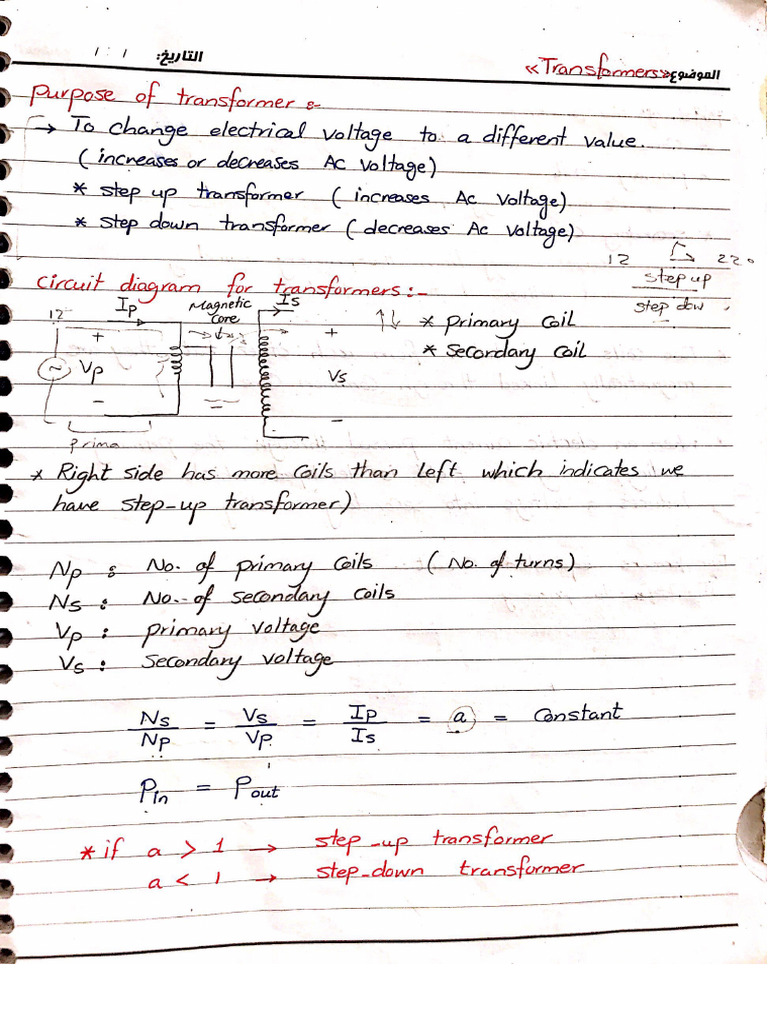 التاريخ: 1 : 1
الموضوع: «Transformers»
Purpose of transformer :-
→ To change electrical voltage to a different value.
(increases or decreases Ac voltage)
* step up transformer (increases Ac voltage)
* step down transformer (decreases Ac voltage)
12 220
step up
step dow
Circuit diagram for transformers:-
12 Ip Magnetic Core Is
+ + ↑↓ * primary Coil
* Secondary Coil
~ Vp Vs
- -
Prima
* Right side has more Coils than left which indicates we
have step-up transformer)
Np : No. of primary Coils (No. of turns)
Ns : No. of secondary Coils
Vp : primary voltage
Vs : Secondary voltage
Ns/Np = Vs/Vp = Ip/Is = a = Constant
Pin = Pout
* if a > 1 → step-up transformer
a < 1 → step-down transformer